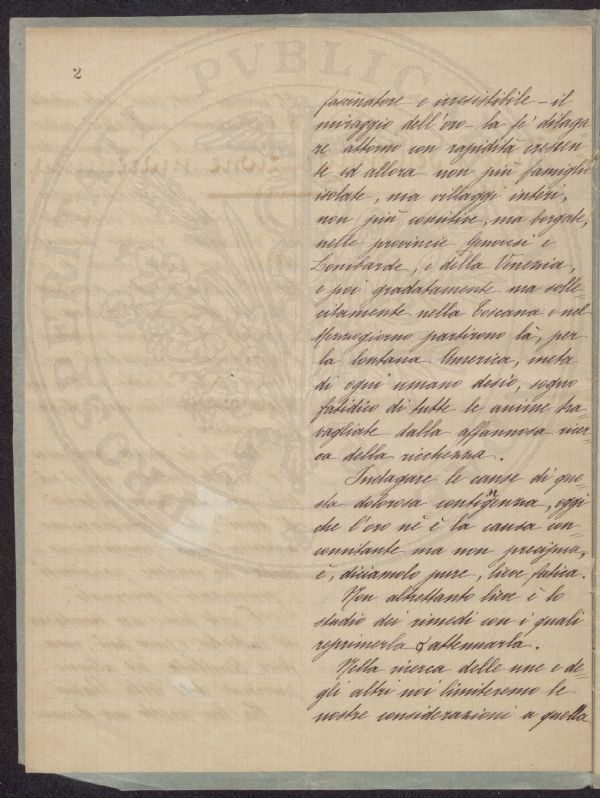 2
fascinatore e irresistibile – il
miraggio dell'oro – la fe' dilaga
re attorno con rapidità crescen
te ed allora non più famiglie
isolate, ma villaggi interi,
non più comitive, ma borgate,
nelle provincie Genovesi e
Lombarde, e della Venezia,
e poi gradatamente ma solle=
citamente nella Toscana e nel
Mezzogiorno partirono là, per
la lontana America, meta
di ogni umano desio, sogno
fatidico di tutte le anime tra=
vagliate dalla affannosa ricer=
ca della ricchezza.
Indagare le cause di que=
sta dolorosa contingenza, oggi
che l'oro nè è la causa con=
comitante ma non precipua,
è, diciamolo pure, lieve fatica.
Non altrettanto lieve è lo
studio dei rimedi con i quali
reprimerla o attenuarla.
Nella ricerca delle une e de=
gli altri noi limiteremo le
nostre considerazioni a quella